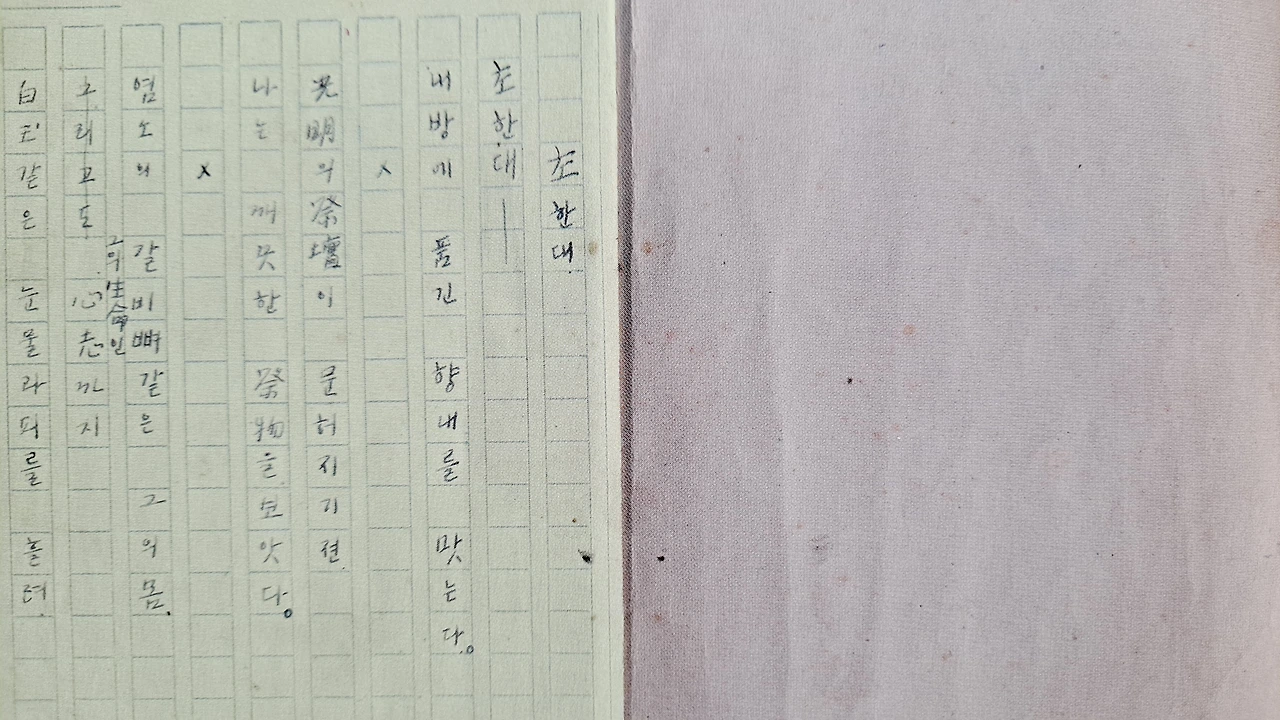 초한대.
초한대—
내방에 품긴 향내를 맛는다。
×
光明의祭壇이 문허지기젼.
나는 깨끗한 祭物을보앗다。
×
염소의 갈비뼈같은 그의몸.
그의生命인
그리고도 心志까지
白玉같은 눈물과피를 흘려.